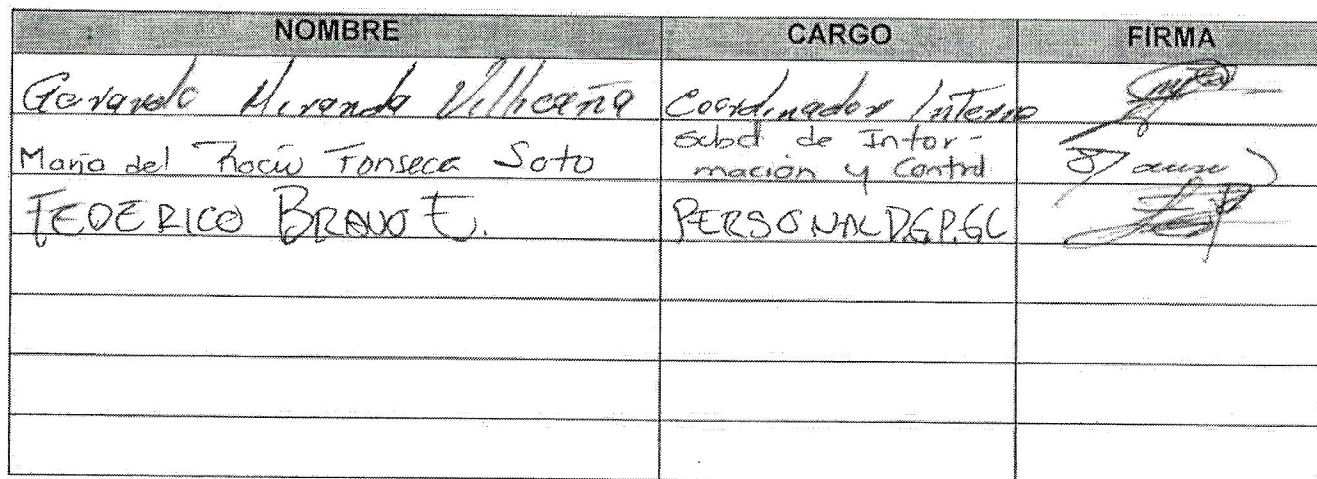 NOMBRE CARGO FIRMA
Gerardo Miranda Villicaña Coordinador Interno
Subd de Infor-
María del Rocío Fonseca Soto mación y Control
FEDERICO BRAVO E. PERSONAL D.G.P.GC